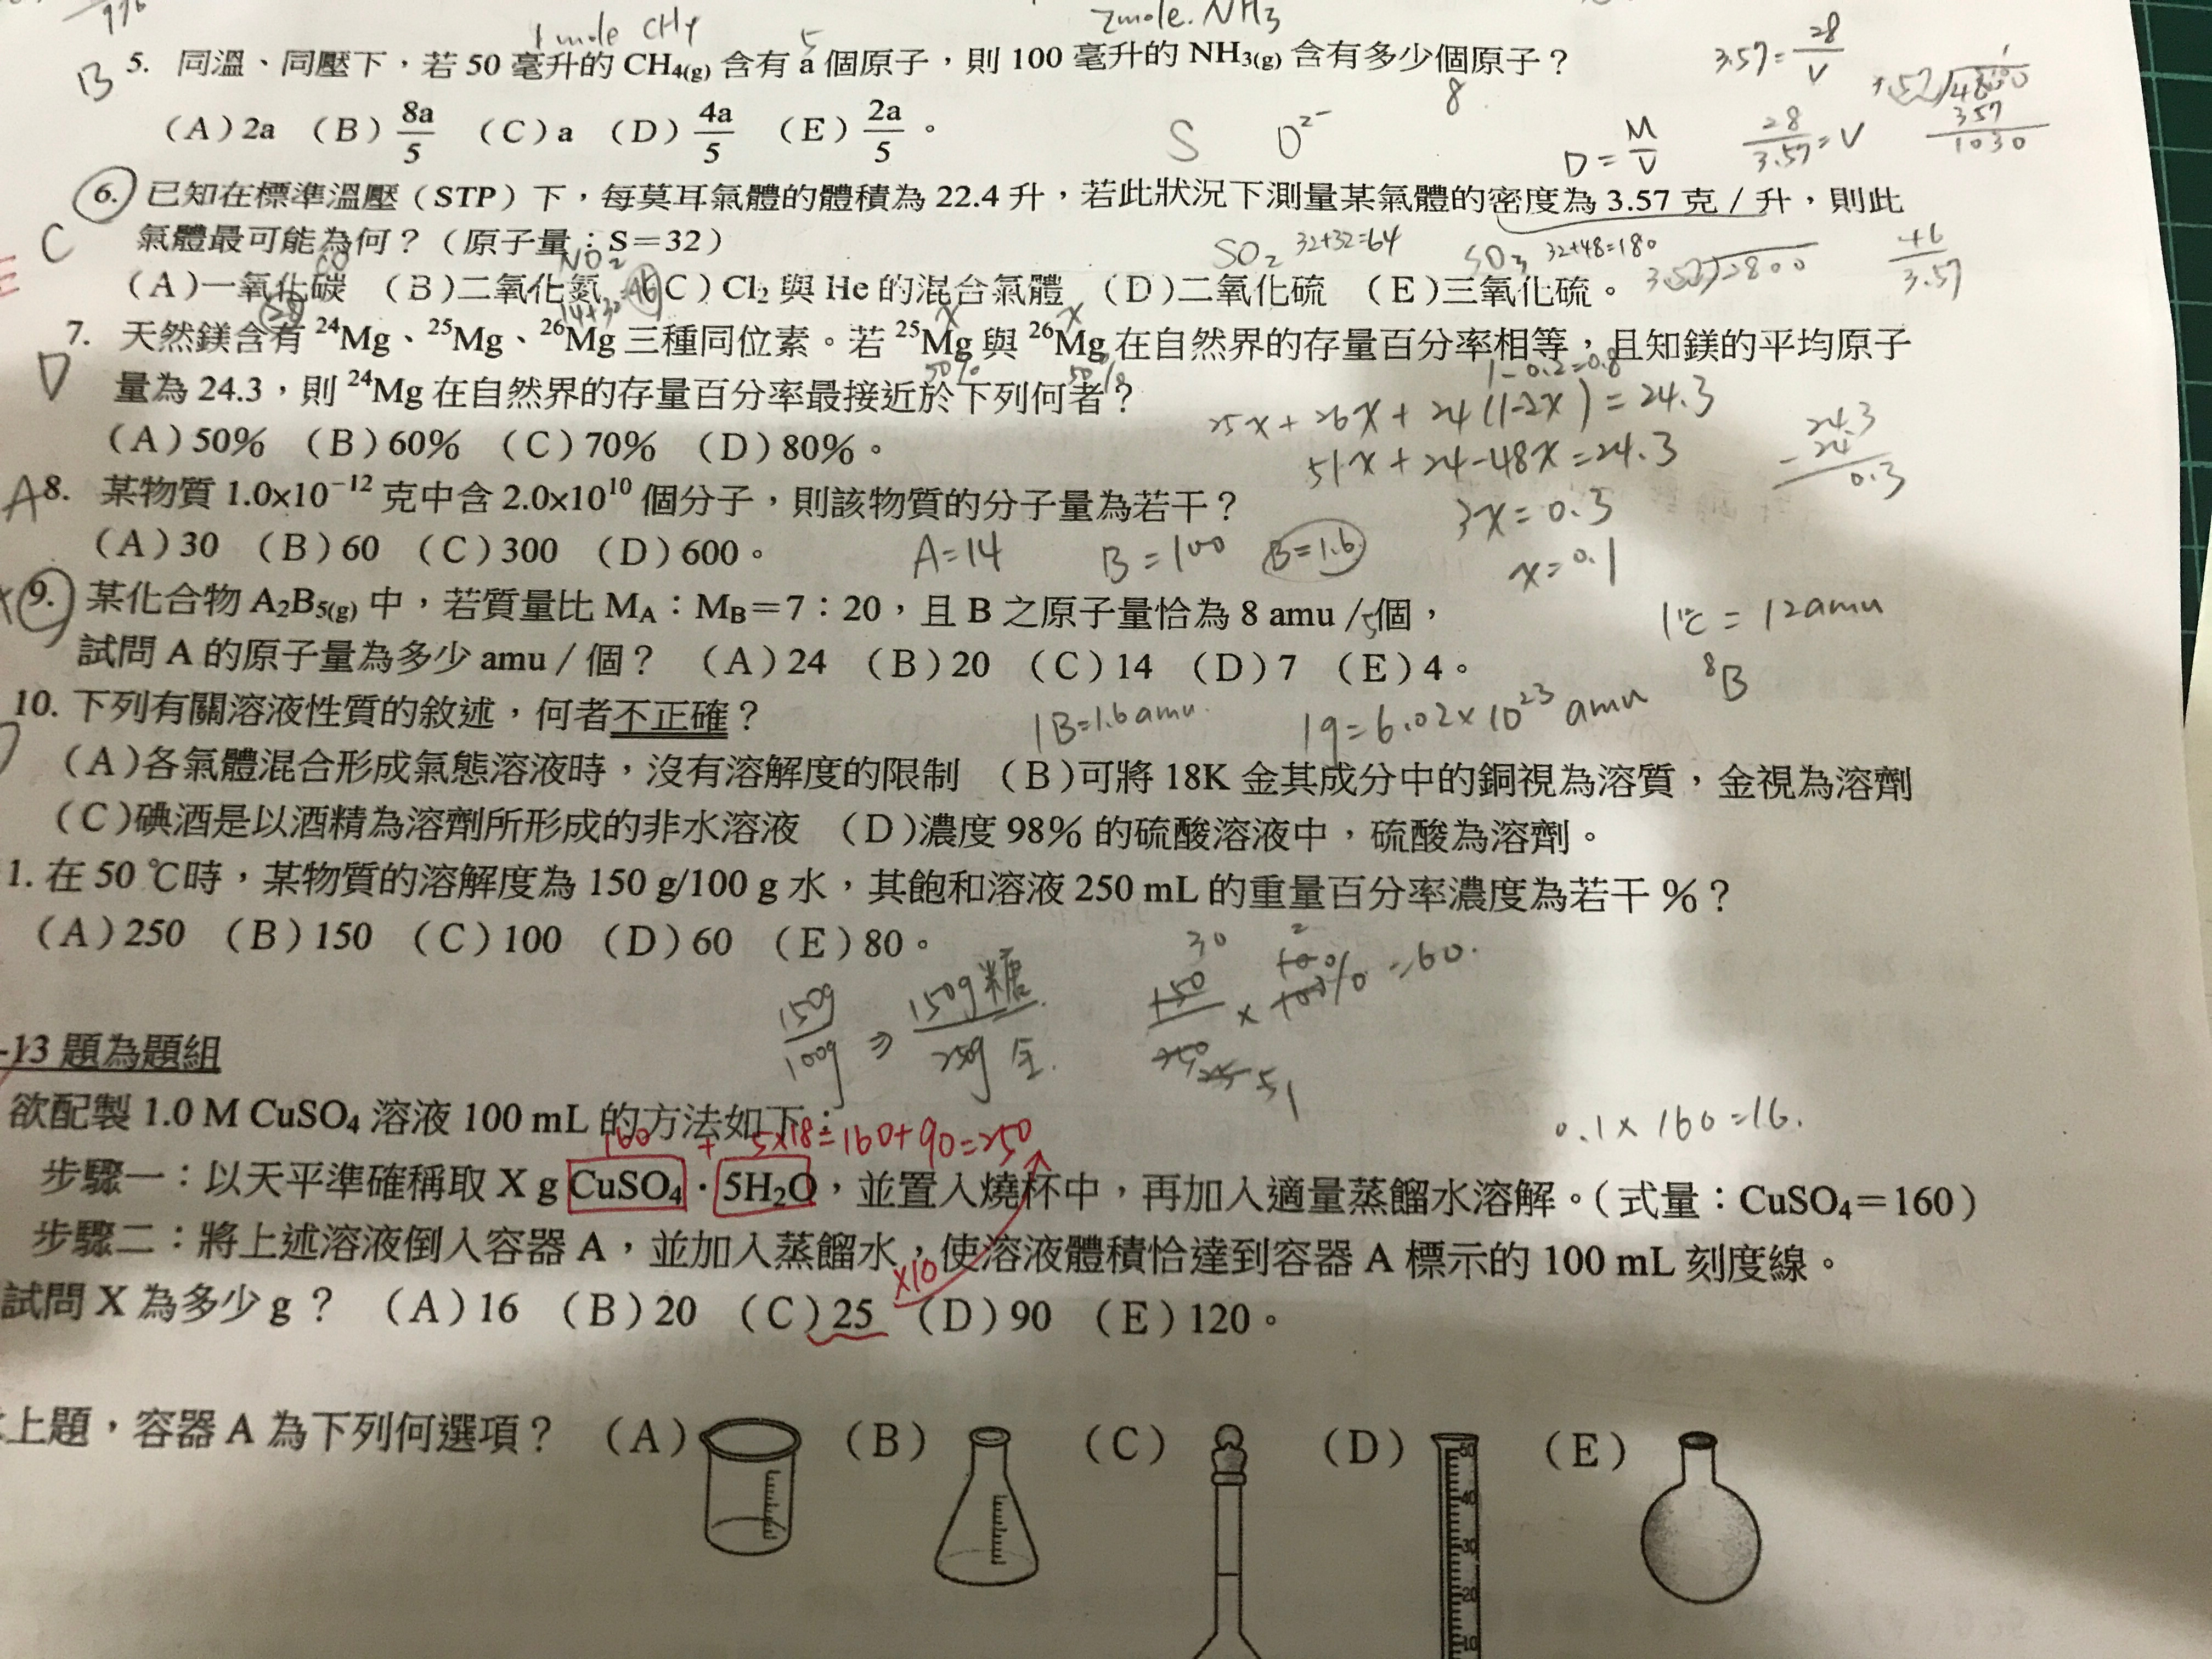 1 mole CH4 2mole. NH3
B 5. 同溫、同壓下，若 50 毫升的 CH4(g) 含有 a 個原子，則 100 毫升的 NH3(g) 含有多少個原子？
5 8
3.57=28/V
(A) 2a (B) 8a/5 (C) a (D) 4a/5 (E) 2a/5 。
S O²⁻ D=M/V 28/3.57=V
357
1030
C 6. 已知在標準溫壓（STP）下，每莫耳氣體的體積為 22.4 升，若此狀況下測量某氣體的密度為 3.57 克／升，則此
氣體最可能為何？（原子量：S＝32）
CO NO2 SO2 32+32=64 SO3 32+48=180 46/3.57
(A)一氧化碳 (B)二氧化氮 (C) Cl2 與 He 的混合氣體 (D)二氧化硫 (E)三氧化硫。 3.57 2800
28 46 X X
D 7. 天然鎂含有 ²⁴Mg、²⁵Mg、²⁶Mg 三種同位素。若 ²⁵Mg 與 ²⁶Mg 在自然界的存量百分率相等，且知鎂的平均原子
50% 50% 1-0.2=0.8
量為 24.3，則 ²⁴Mg 在自然界的存量百分率最接近於下列何者？
25x+26x+24(1-2x)=24.3
(A) 50% (B) 60% (C) 70% (D) 80%。
51x+24-48x=24.3
24.3
-24
0.3
A 8. 某物質 1.0×10⁻¹² 克中含 2.0×10¹⁰ 個分子，則該物質的分子量為若干？
3x=0.3
(A) 30 (B) 60 (C) 300 (D) 600。
A=14 B=100 B=1.6 x=0.1
9. 某化合物 A2B5(g) 中，若質量比 MA：MB＝7：20，且 B 之原子量恰為 8 amu／個，
5 1¹²C = 12amu
試問 A 的原子量為多少 amu／個？ (A) 24 (B) 20 (C) 14 (D) 7 (E) 4。
⁸B
10. 下列有關溶液性質的敘述，何者不正確？
1B=1.6amu. 1g=6.02×10²³ amu
(A)各氣體混合形成氣態溶液時，沒有溶解度的限制 (B)可將 18K 金其成分中的銅視為溶質，金視為溶劑
(C)碘酒是以酒精為溶劑所形成的非水溶液 (D)濃度 98% 的硫酸溶液中，硫酸為溶劑。
1. 在 50 ℃時，某物質的溶解度為 150 g/100 g 水，其飽和溶液 250 mL 的重量百分率濃度為若干 %？
(A) 250 (B) 150 (C) 100 (D) 60 (E) 80。
150g/100g ⇒ 150g糖
30 2 =60.
-13 題為題組
欲配製 1.0 M CuSO4 溶液 100 mL 的方法如下：
0.1×160=16.
160 + 5×18=160+90=250
步驟一：以天平準確稱取 X g CuSO4．5H2O，並置入燒杯中，再加入適量蒸餾水溶解。（式量：CuSO4＝160）
步驟二：將上述溶液倒入容器 A，並加入蒸餾水，使溶液體積恰達到容器 A 標示的 100 mL 刻度線。
×10
試問 X 為多少 g？ (A) 16 (B) 20 (C) 25 (D) 90 (E) 120。
上題，容器 A 為下列何選項？ (A) (B) (C) (D) (E)
50
40
30
20
10